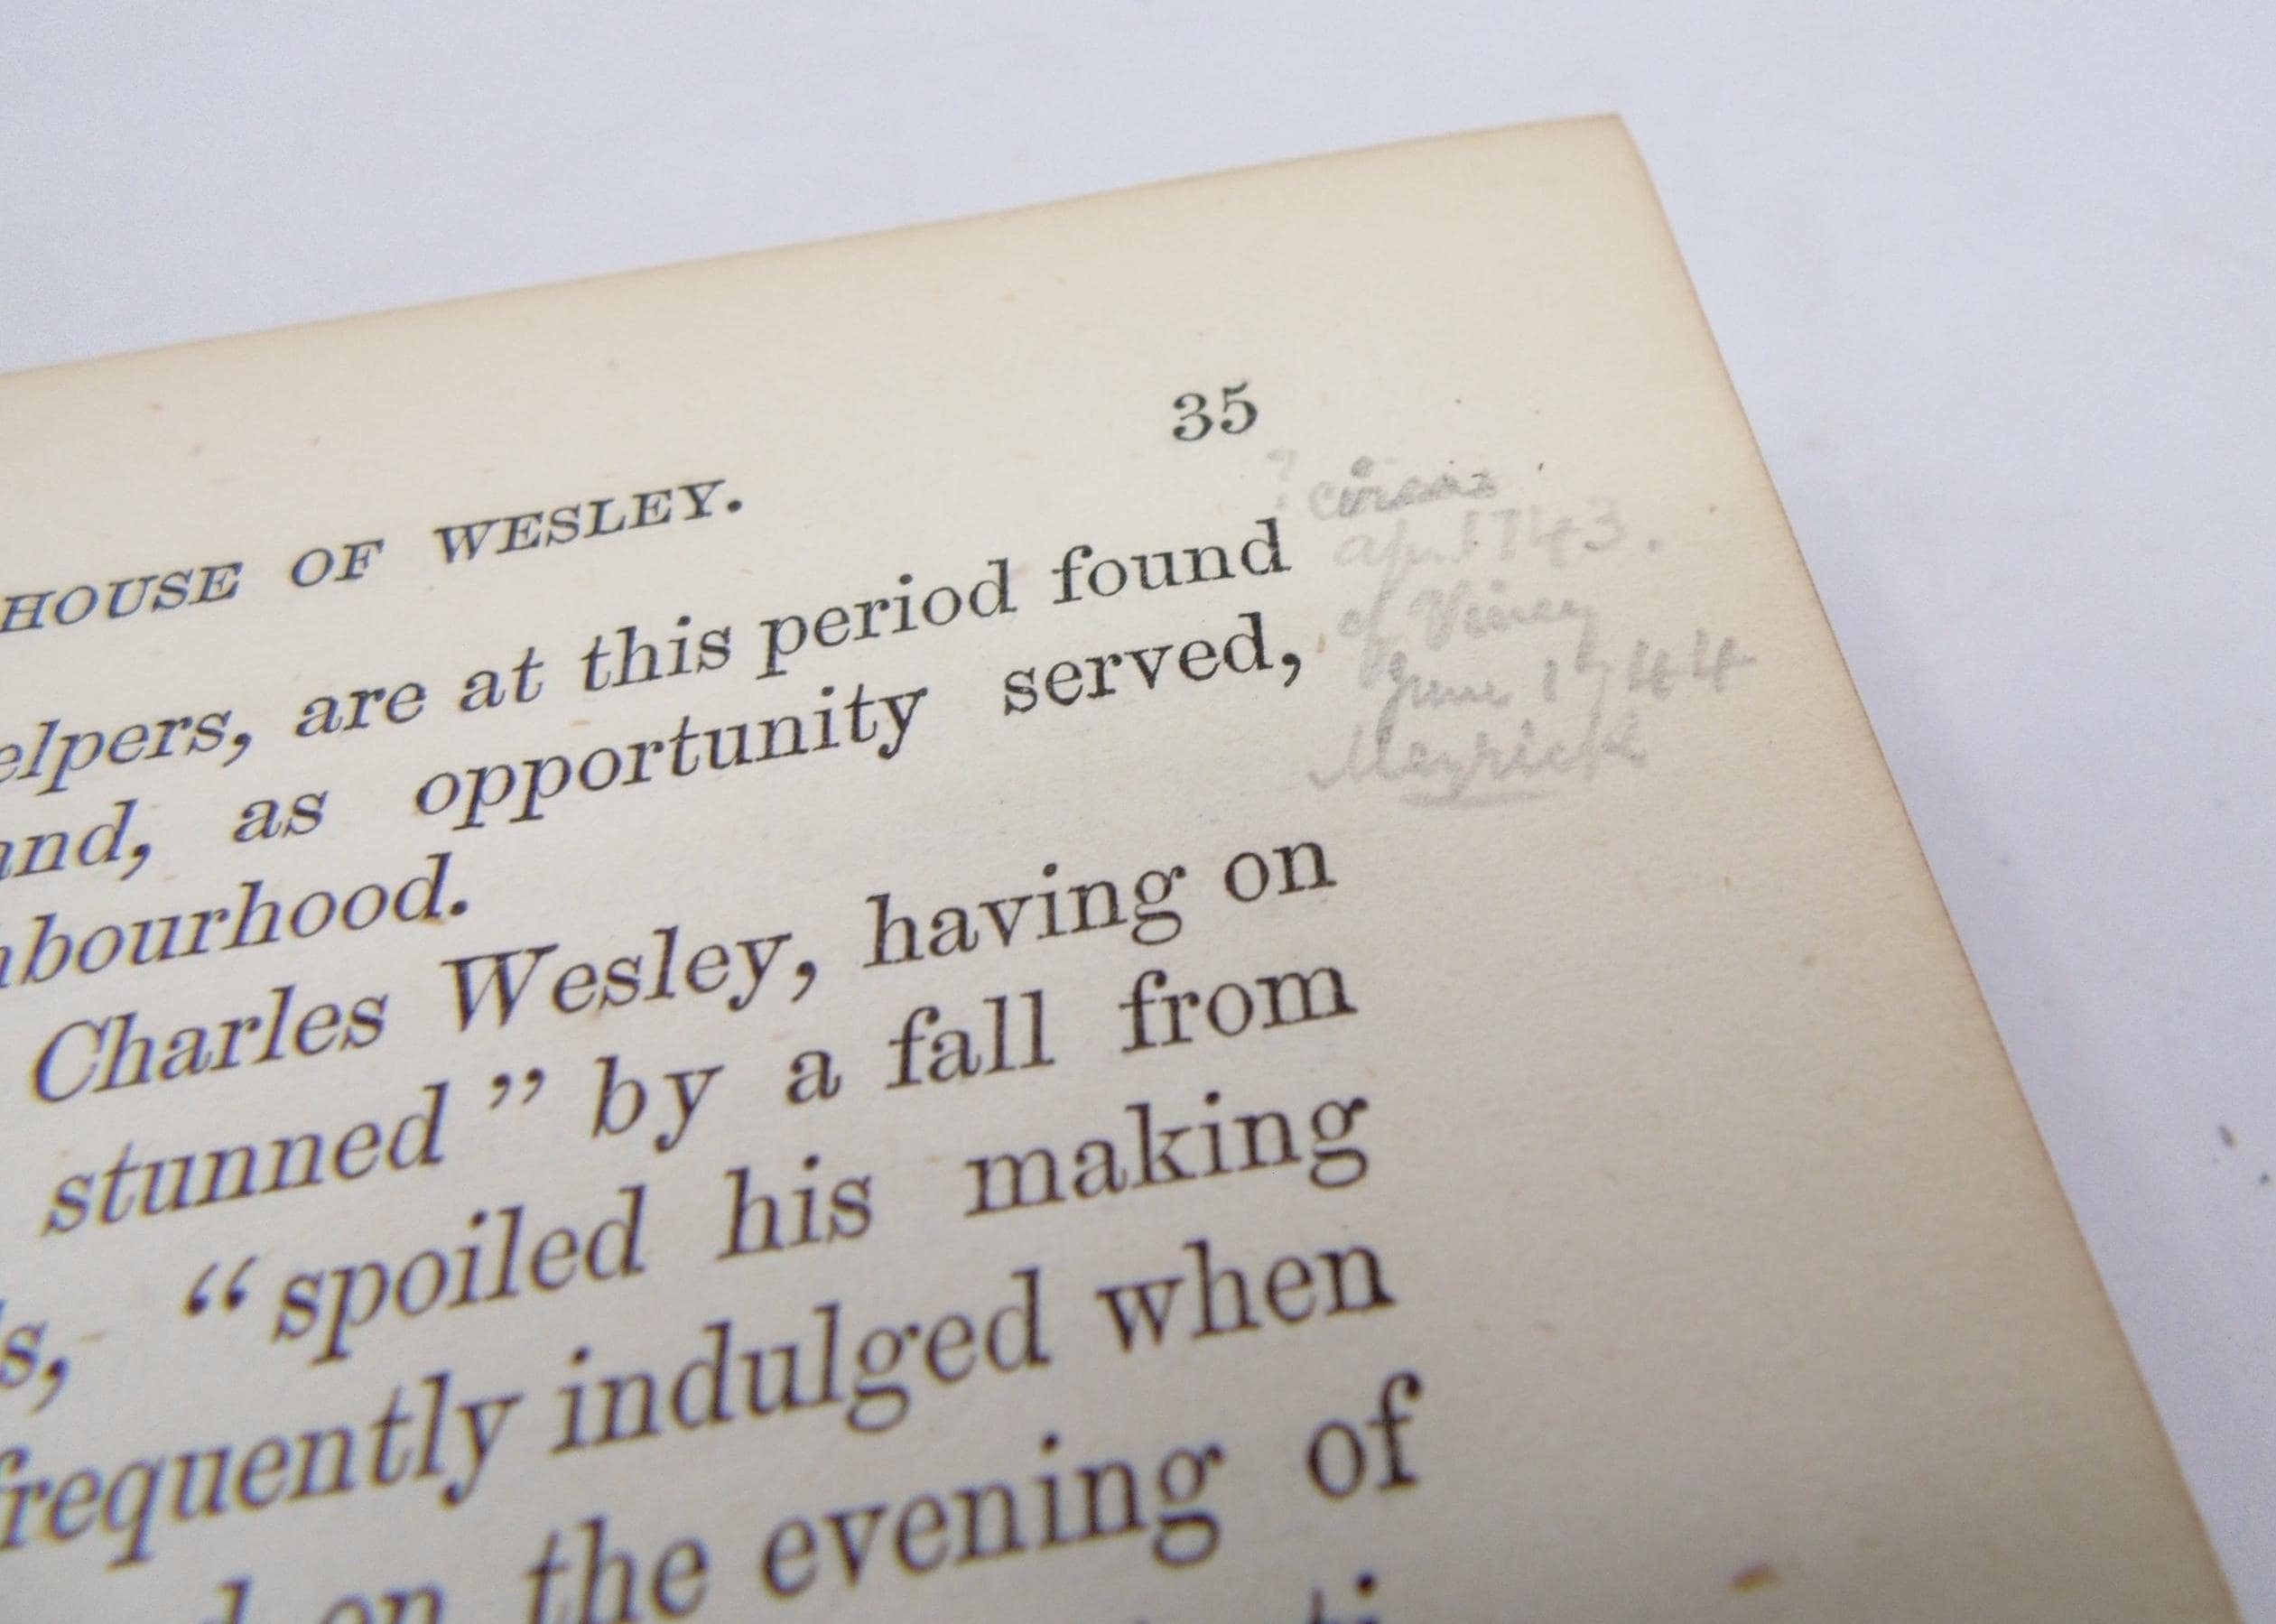 35
HOUSE OF WESLEY.
? circa
elpers, are at this period found
1743.
and, as opportunity served,
cf Viney
June 1744
Meyrick
bourhood.
Charles Wesley, having on
stunned" by a fall from
s, "spoiled his making
frequently indulged when
on the evening of